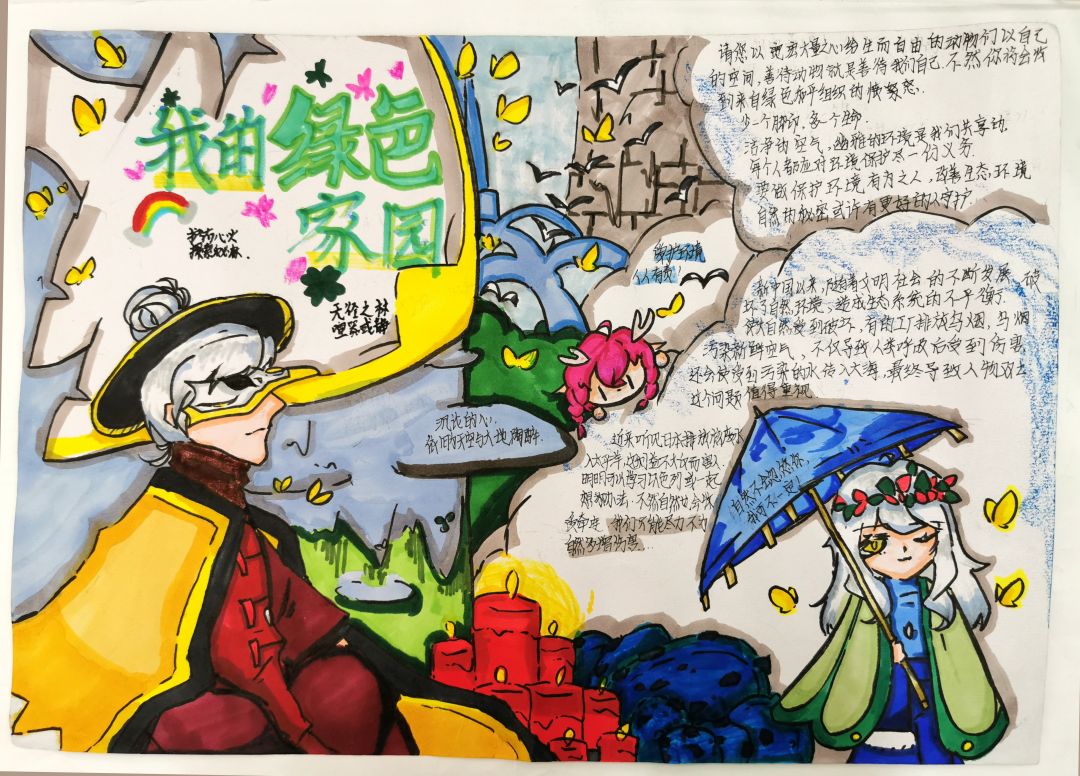 我的绿色
家园
护防心火
探索如林.
天谷之林
保护环境
人人有责!
请您以宽宏大量之心给生而自由的动物们以自己
的空间,善待动物就是善待我们自己.不然你将会收
到来自绿色和平组织的
少一个脚印,多一个
洁净的空气,幽雅的环境是我们共享的.
每个人都应对环境保护尽一份义务.
要做保护环境有为之人,改善生态环境
自然的秘密或许有更好的人守护
新中国以来,随着文明社会的不断发展,破
坏了自然环境,造成生态系统的不平衡.
使大自然受到破坏.有的工厂排放乌烟,乌烟
污染新鲜空气,不仅导致人类呼吸后受到伤害
还会使受到污染的水传入大海,最终导致人物双亡
这个问题值得重视.
沉沦的心,
依旧为天空与大地陶醉.
近来听说日本排放核废水
入太平洋,
明明可以学习以色列或一起
想想办法,不然自然也会收
我们只能尽力不为
自然多增伤害...
自然不会怨恨你,
我可不一定!